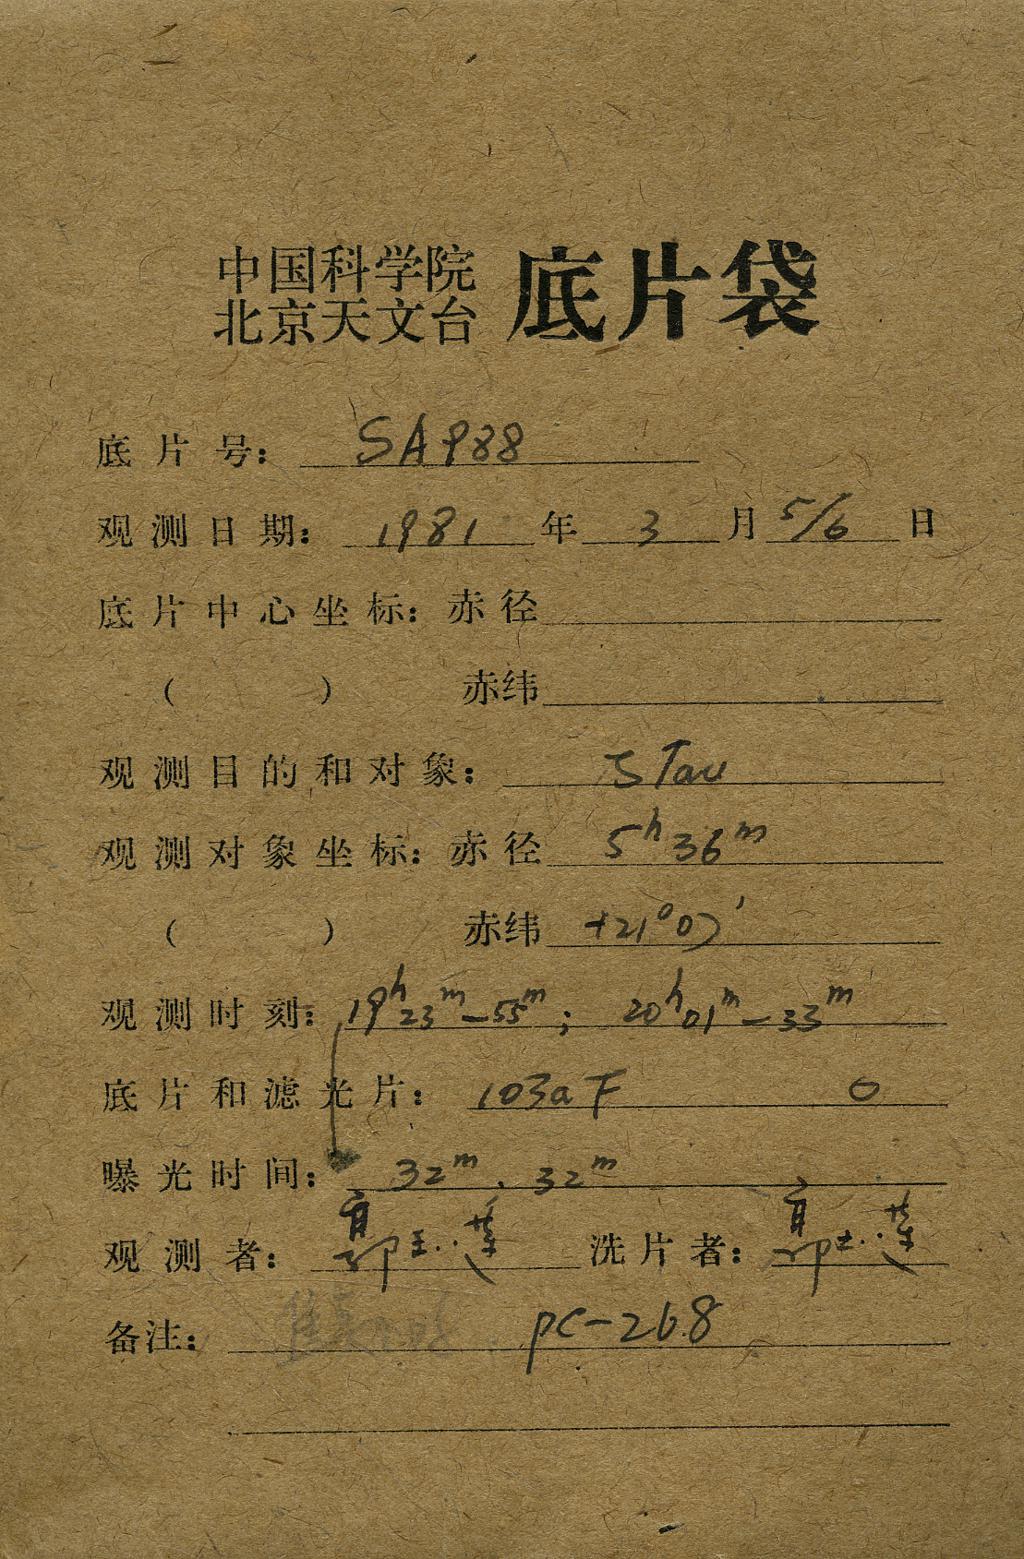 中国科学院
北京天文台
底片袋
底片号: SA988
观测日期: 1981年3月5/6日
底片中心坐标: 赤径
( ) 赤纬
观测目的和对象: Tau
观测对象坐标: 赤径 5h36m
( ) 赤纬 +21°07'
观测时刻: 19h23m-55m; 20h01m-33m
底片和滤光片: 103aF O
曝光时间: 32m、32m
观测者: 郭玉莲 洗片者: 郭玉莲
备注: PC-268